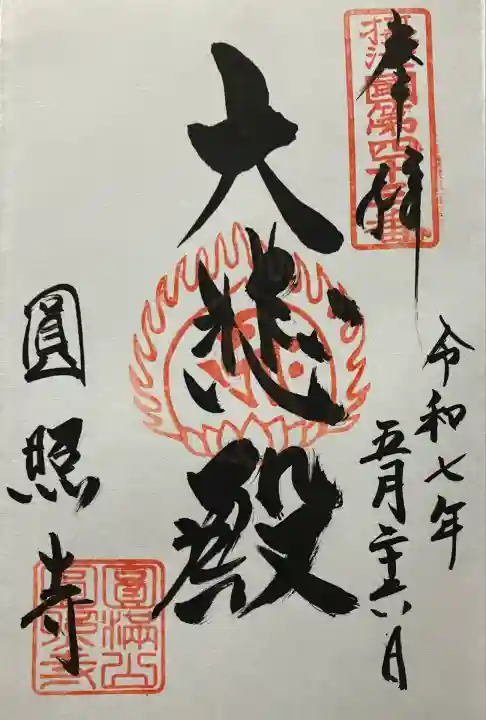 奉拝
令和七年
五月二十六日
大悲殿
圓照寺
圓満山
圓照寺